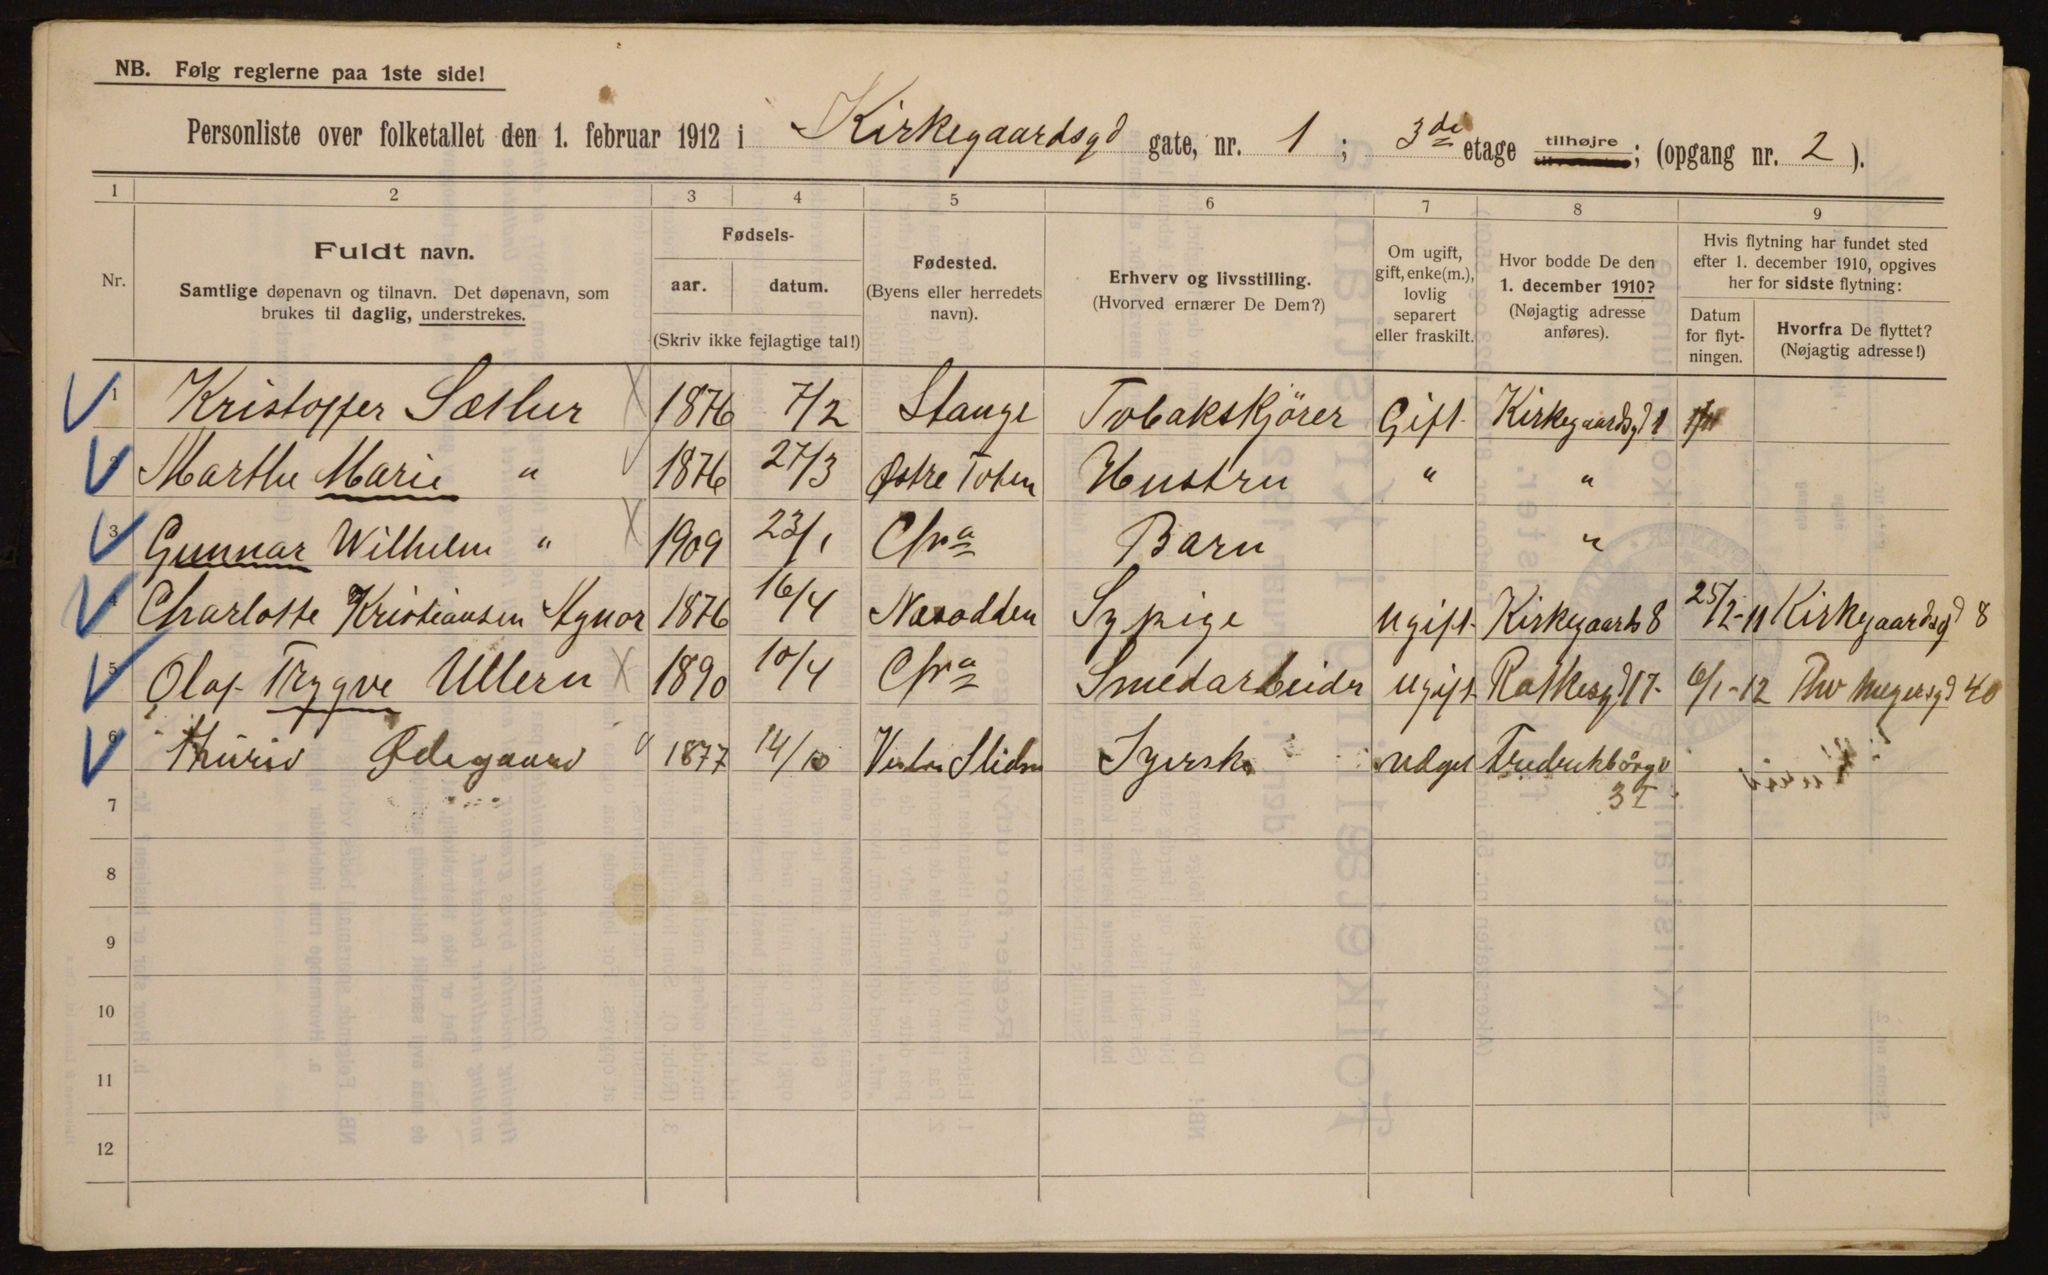 NB. Følg reglerne paa 1ste side!
Personliste over folketallet den 1. februar 1912 i Kirkegaardsgd gate, nr. 1 ; 3de etage tilhøjre ; (opgang nr. 2 ).
1 2 3 4 5 6 7 8 9
Nr.
Fuldt navn.
Samtlige døpenavn og tilnavn. Det døpenavn, som
brukes til daglig, understrekes.
Fødsels-
aar. datum.
(Skriv ikke fejlagtige tal!)
Fødested.
(Byens eller herredets
navn).
Erhverv og livsstilling.
(Hvorved ernærer De Dem?)
Om ugift,
gift, enke(m.),
lovlig
separert
eller fraskilt.
Hvor bodde De den
1. december 1910?
(Nøjagtig adresse
anføres).
Hvis flytning har fundet sted
efter 1. december 1910, opgives
her for sidste flytning:
Datum
for flyt-
ningen.
Hvorfra De flyttet?
(Nøjagtig adresse!)
1 Kristoffer Sætlur 1876 7/2 Stange Tobakskjörer Gift Kirkegaardsgd 1
2 Marthe Marie " 1876 27/3 Østre Toten Hustru " "
3 Gunnar Wilhelm " 1909 23/1 Chra Barn "
4 Charlotte Kristiansen Agnor 1876 16/4 Næsodden Sypige ugift Kirkegaards 8 25/2-11 Kirkegaardsgd 8
5 Olaf Trygve Ullern 1890 10/4 Chra Smedarbeider ugift Ratkesgd 17 6/1-12 Thv Meyersgd 40
6 Thurid Ødegaard 1877 14/10 Vestre Slidre Syersk ugift
37
7
8
9
10
11
12